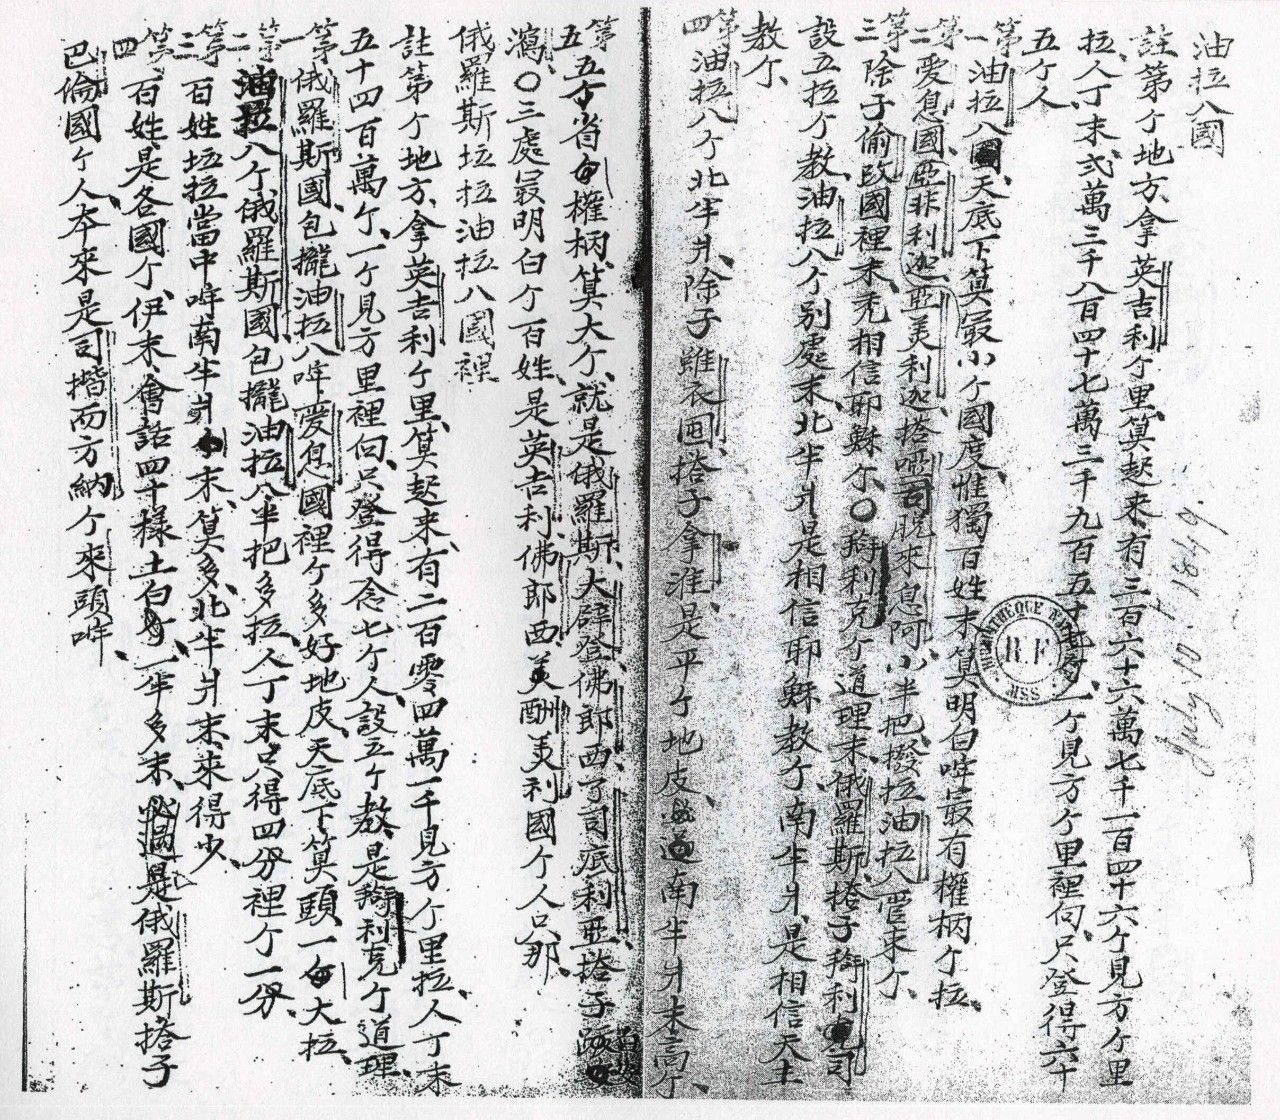 油拉八國
註第ケ地方、拿英吉利ケ里、算起來、有三百六十六萬七千一百四十六ケ見方ケ里
拉、人丁末、弍萬三千八百四十七萬三千九百五十七ケ、一ケ見方ケ里裡向、只登得六十
五ケ人
第一油拉八國、天底下算最小ケ國度、惟獨百姓末、算明白啐最有權柄ケ拉、
第二愛息國、亞非利迦、亞美利迦、搭 司 來息阿、小半把、撥拉油拉八管束ケ、
第三除子偷 國裡末、 相信耶穌ケ、〇 利克ケ道理末、俄羅斯、搭子 利 司
設立拉ケ教、油拉八ケ別處末、北半爿是相信耶穌教ケ、南半爿、是相信天主
教ケ、
第四油拉八ケ北半爿、除子 衣 、搭子拿淮、是平ケ地皮、 南半爿末高ケ、
第五五ケ省 權柄、算大ケ、就是俄羅斯、大 登、佛郎西、 司底利亞、搭子
〇三處最明白ケ百姓、是英吉利、佛耶西、美 美利國ケ人、只那、
俄羅斯拉拉油拉八國裡
註第ケ地方、拿英吉利ケ里、算起來、有二百零四萬一千見方ケ里拉、人丁末
五十四百萬ケ、一ケ見方里裡向、只登得念七ケ人、設立ケ教、是 利克ケ道理、
第一俄羅斯國、包攏油拉八啐愛息國裡ケ多好地皮、天底下算頭一 大拉、
第二油拉八ケ俄羅斯國、包攏油拉八半把多拉、人丁末、只得四分裡ケ一分、
第三百姓拉拉當中啐南半爿 末、算多、北半爿末、來得少、
第四百姓、是各國ケ、伊末、會話四十樣土白ケ、一半多末、 是俄羅斯、搭子
巴倫國ケ人、夲來是司 而方納ケ來頭啐、
July 10 1849
R.F.